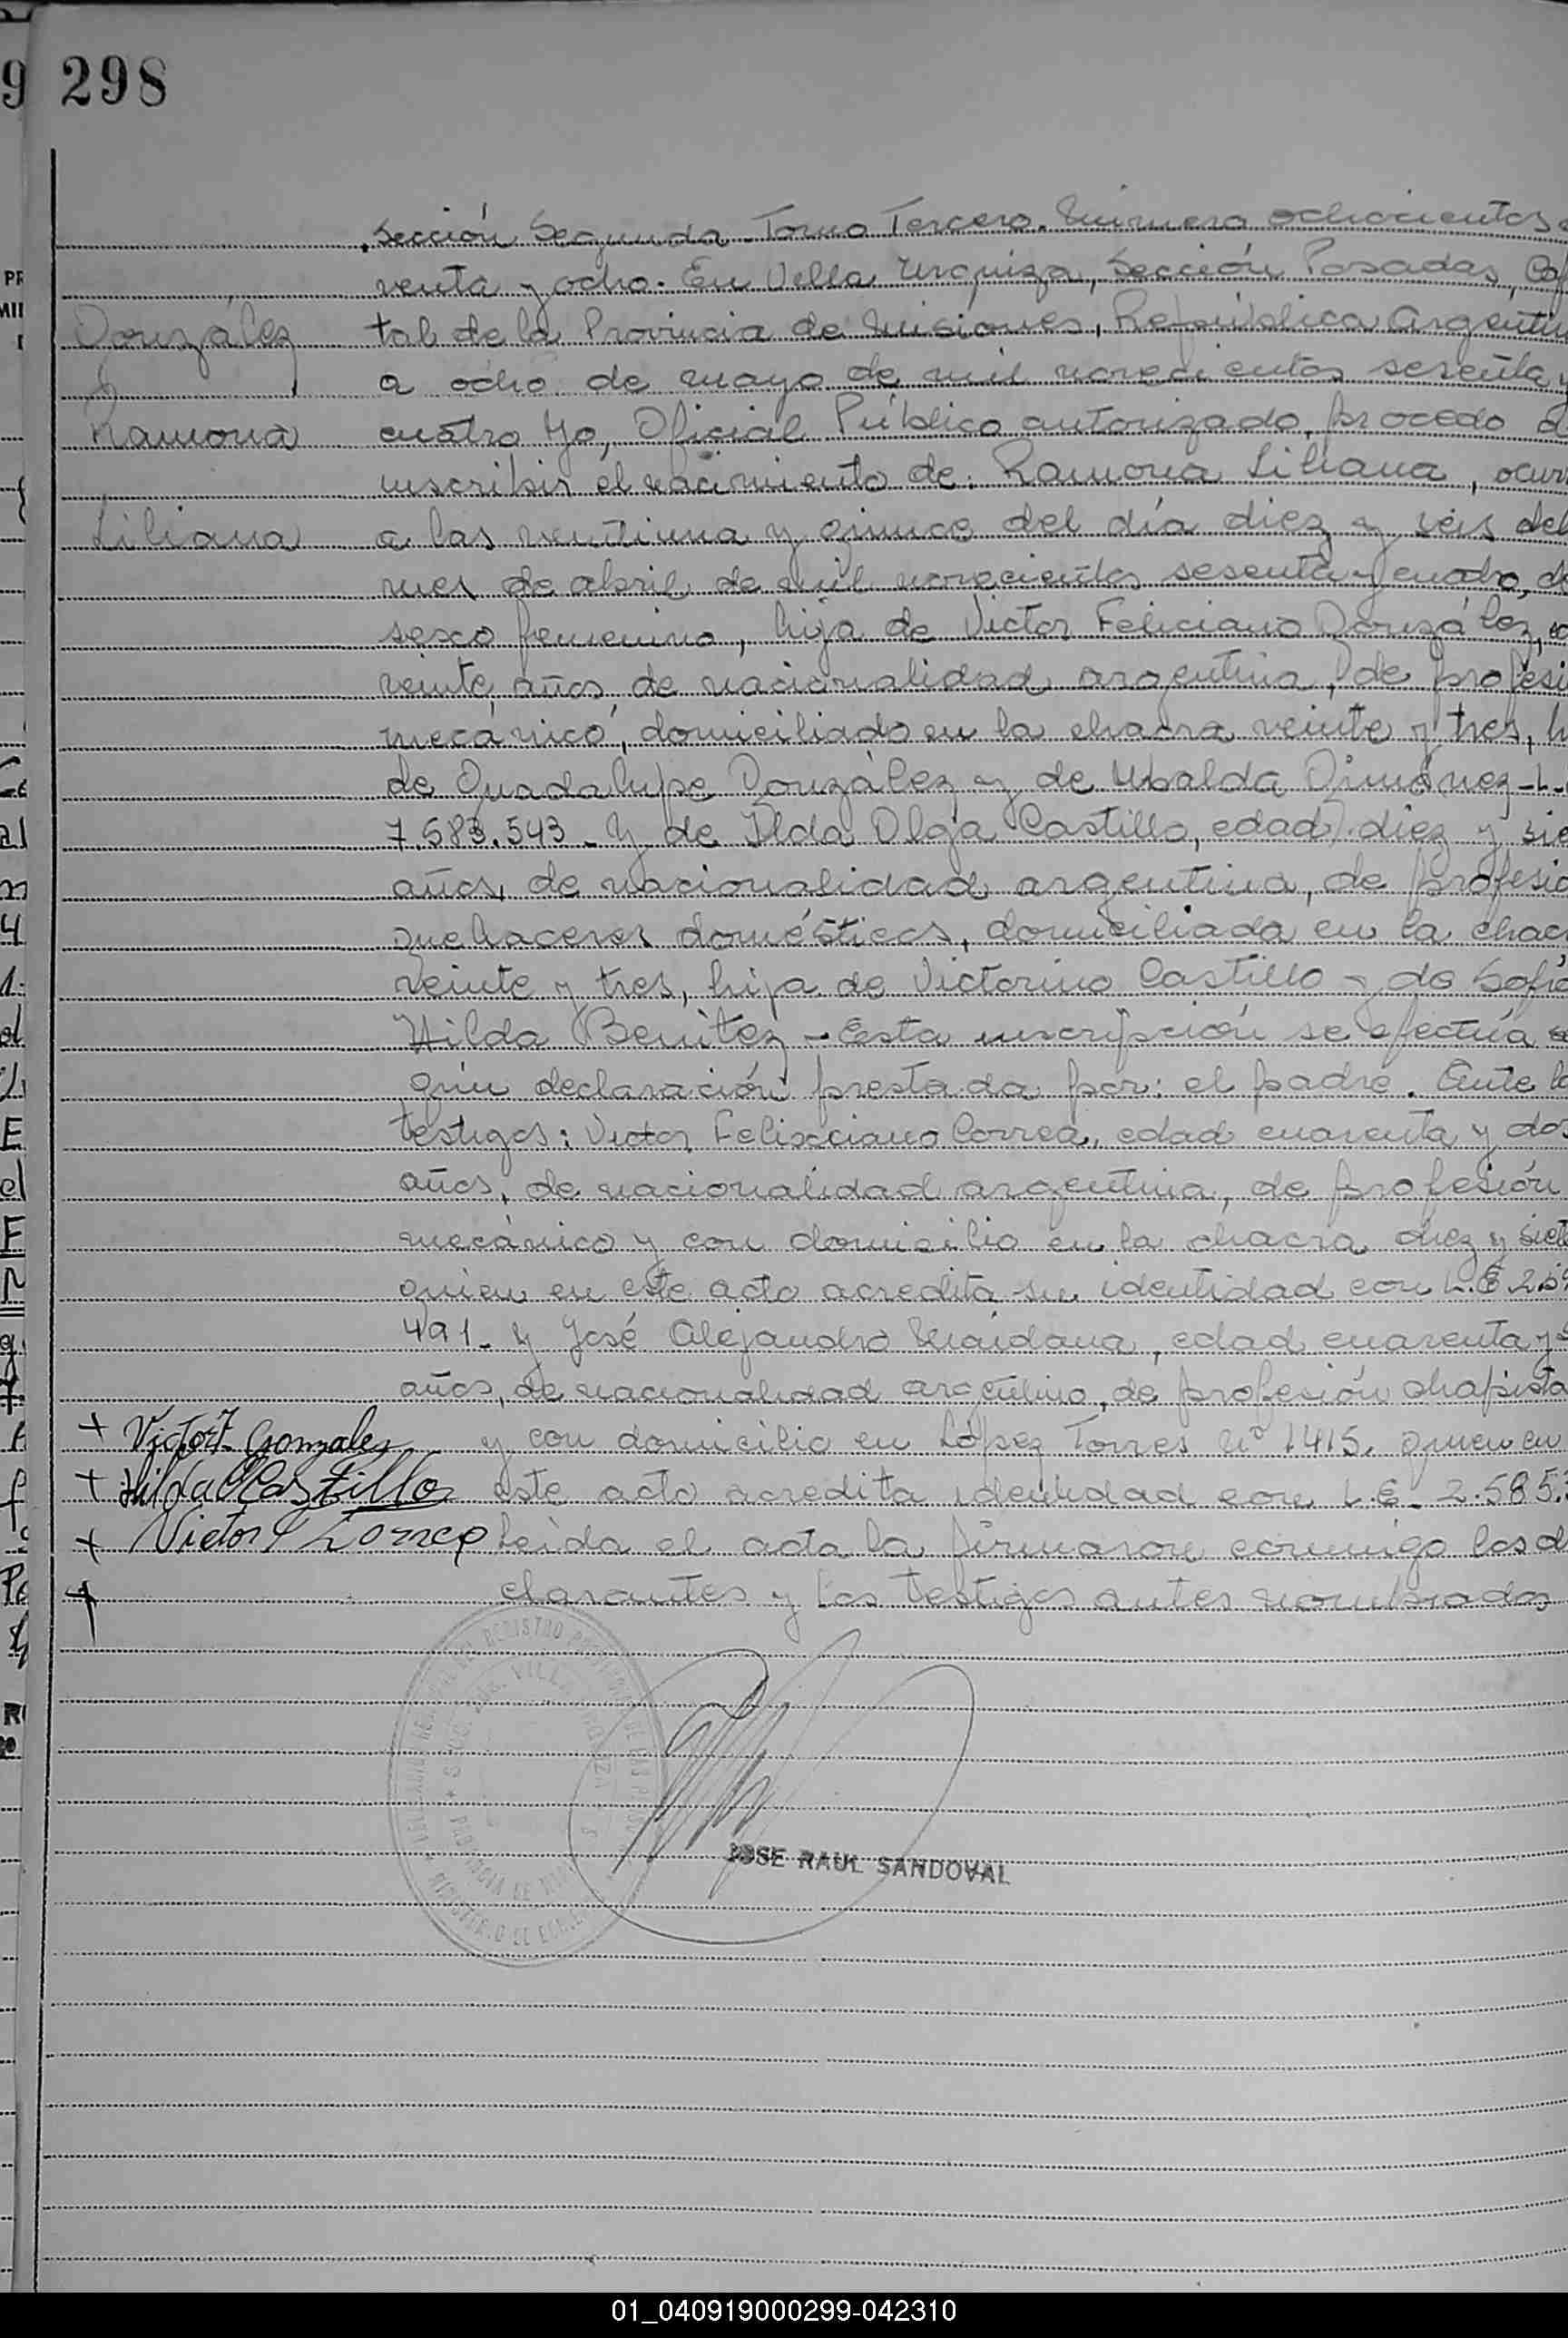 298
Sección Segunda Tomo Tercero. Número ochocientos
venta y ocho. En Villa Urquiza, Sección Posadas, Cap
González
tal de la Provincia de Misiones, República Argentin
a ocho de mayo de mil novecientos sesenta y
Ramona
cuatro Yo, Oficial Público autorizado, procedo a
inscribir el nacimiento de: Ramona Liliana, ocurr
Liliana
a las veintiuna y quince del día diez y seis del
mes de abril de mil novecientos sesenta y cuatro, de
sexo femenino, hija de Victor Feliciano González, ed
veinte años, de nacionalidad argentina, de profesi
mecánico, domiciliado en la chacra veinte y tres, h
de Guadalupe González y de Ubalda Giménez - L.
7.583.543 - Y de Ilda Olga Castillo, edad diez y sie
años, de nacionalidad argentina, de profesió
quehaceres domésticos, domiciliada en la chac
veinte y tres, hija de Victorino Castillo y de Sofía
Hilda Benitez - Esta inscripción se efectúa se
gún declaración prestada por: el padre. Ante lo
testigos: Victor Felixciano Correa, edad cuarenta y dos
años, de nacionalidad argentina, de profesión
mecánico y con domicilio en la chacra diez y siet
quien en este acto acredita su identidad con L.E. 2.5
491 - Y José Alejandro Maidana, edad cuarenta y
años, de nacionalidad argentino, de profesión chapista
+ Victor F. Gonzalez
y con domicilio en López Torres Nº 1415. quien en
+ Hilda O Castillo
este acto acredita identidad con L.E. 2.585.
+ Victor F Correa
Leída el acta la firmaron conmigo los d
+
clarantes y los testigos antes nombrados
JOSE RAUL SANDOVAL
01_040919000299-042310